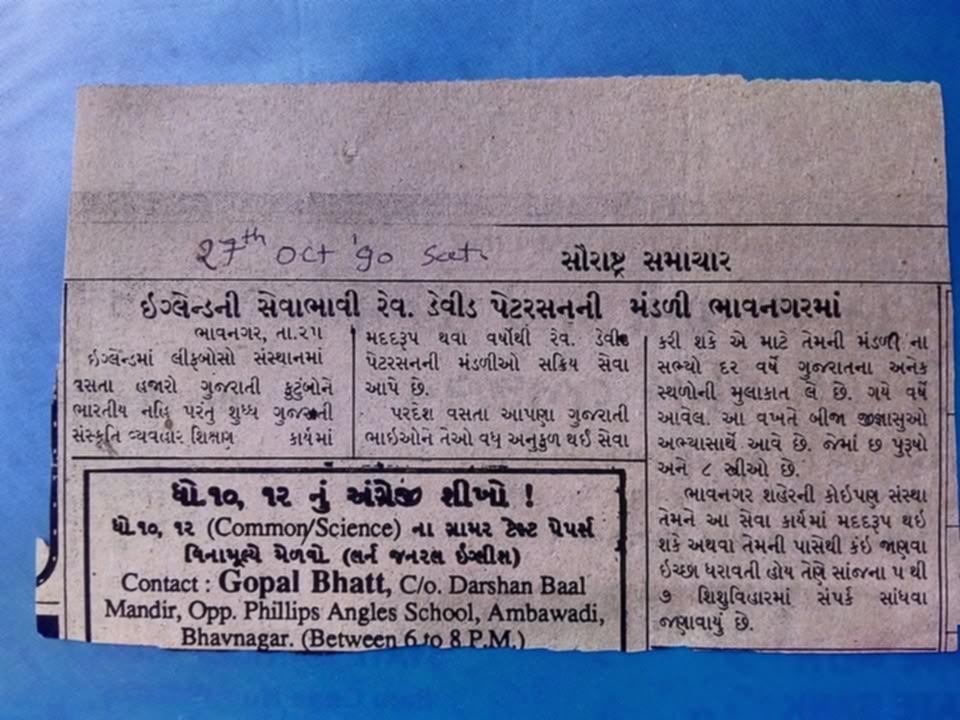 27th Oct '90 Sat.
સૌરાષ્ટ્ર સમાચાર
ઇંગ્લેન્ડની સેવાભાવી રેવ. ડેવીડ પેટરસનની મંડળી ભાવનગરમાં
ભાવનગર, તા.૨૫
ઇંગ્લેન્ડમાં લીફબોસો સંસ્થાનમાં
વસતા હજારો ગુજરાતી કુટુંબોને
ભારતીય નહિ પરંતુ શુધ્ધ ગુજરાતી
સંસ્કૃતિ વ્યવહાર શિક્ષણ કાર્યમાં
મદદરૂપ થવા વર્ષોથી રેવ. ડેવીડ
પેટરસનની મંડળીઓ સક્રિય સેવા
આપે છે.
પરદેશ વસતા આપણા ગુજરાતી
ભાઇઓને તેઓ વધુ અનુકુળ થઈ સેવા
કરી શકે એ માટે તેમની મંડળી ના
સભ્યો દર વર્ષે ગુજરાતના અનેક
સ્થળોની મુલાકાત લે છે. ગયે વર્ષે
આવેલ. આ વખતે બીજા જીજ્ઞાસુઓ
અભ્યાસાર્થે આવે છે. જેમાં છ પુરૂષો
અને ૮ સ્ત્રીઓ છે.
ભાવનગર શહેરની કોઇપણ સંસ્થા
તેમને આ સેવા કાર્યમાં મદદરૂપ થઇ
શકે અથવા તેમની પાસેથી કંઇ જાણવા
ઇચ્છા ધરાવતી હોય તેણે સાંજના ૫ થી
૭ શિશુવિહારમાં સંપર્ક સાંધવા
જણાવાયું છે.
ધો.૧૦, ૧૨ નું અંગ્રેજી શીખો !
ધો.૧૦, ૧૨ (Common/Science) ના ગ્રામર ટેસ્ટ પેપર્સ
વિનામૂલ્યે મેળવો (લર્ન જનરલ ઇંગ્લીસ)
Contact : Gopal Bhatt, C/o. Darshan Baal
Mandir, Opp. Phillips Angles School, Ambawadi,
Bhavnagar. (Between 6 to 8 P.M.)